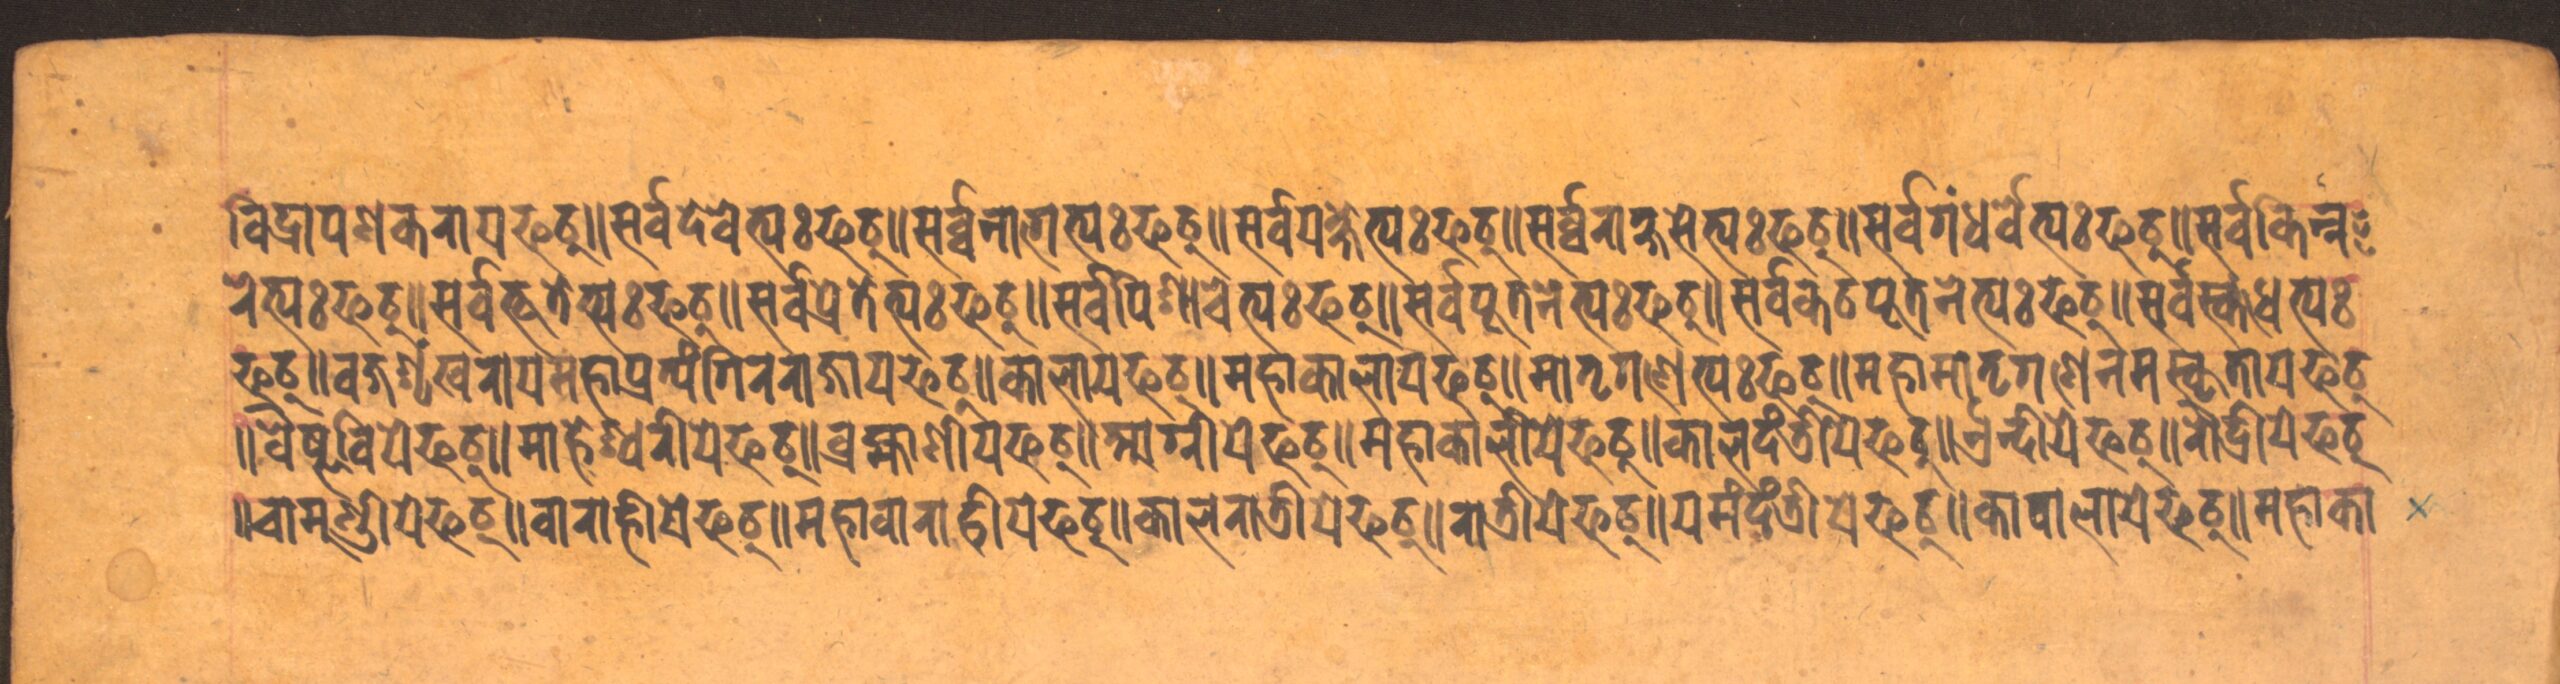 विद्रापशकरायफट्॥सर्वदेवेभ्यःफट्॥सर्व्वनागेभ्यःफट्॥सर्वयक्षेभ्यःफट्॥सर्व्वराक्षसेभ्यःफट्॥सर्वगंधर्वेभ्यःफट्॥सर्वकिन्न
रेभ्यःफट्॥सर्वभूतेभ्यःफट्॥सर्वप्रेतेभ्यःफट्॥सर्वपिशाचेभ्यःफट्॥सर्वपूतनेभ्यःफट्॥सर्वकठपूतनेभ्यःफट्॥सर्वस्कंधेभ्यः
फट्॥वज्रशृंखरायमहाप्रत्यंगिरराजायफट्॥कालायफट्॥महाकालायफट्॥मातृगणेभ्यःफट्॥महामातृगणेनमस्कृतायफट्
॥वैष्णवियेफट्॥माहेश्वरीयेफट्॥ब्रह्माणीयफट्॥आग्नीयेफट्॥महाकालीयेफट्॥कालदंतीयेफट्॥ऐन्दीयेफट्॥रौद्रीयेफट्
॥चामुण्डीयेफट्॥वाराहीयेफट्॥महावाराहीयेफट्॥कालरात्रीयेफट्॥रात्रीयेफट्॥यमंदंतीयेफट्॥कापालायेफट्॥महाका